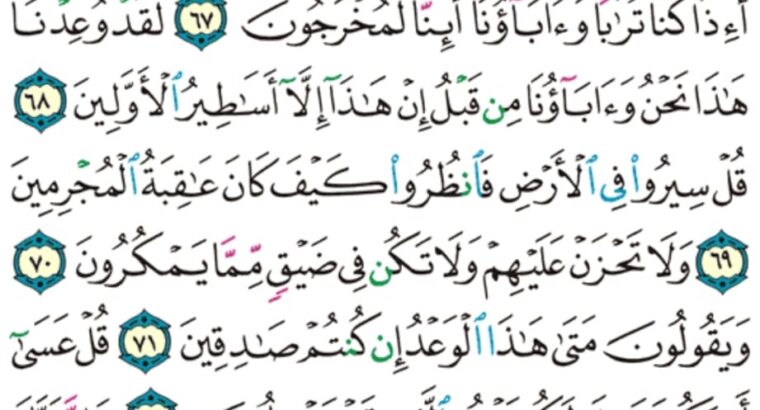 أَءِذَا كُنَّا تُرَٰبًا وَءَابَآؤُنَآ أَئِنَّا لَمُخْرَجُونَ ٦٧ لَقَدْ وُعِدْنَا
هَٰذَا نَحْنُ وَءَابَآؤُنَا مِن قَبْلُ إِنْ هَٰذَآ إِلَّآ أَسَٰطِيرُ ٱلْأَوَّلِينَ ٦٨
قُلْ سِيرُوا۟ فِى ٱلْأَرْضِ فَٱنظُرُوا۟ كَيْفَ كَانَ عَٰقِبَةُ ٱلْمُجْرِمِينَ
٦٩ وَلَا تَحْزَنْ عَلَيْهِمْ وَلَا تَكُن فِى ضَيْقٍ مِّمَّا يَمْكُرُونَ ٧٠
وَيَقُولُونَ مَتَىٰ هَٰذَا ٱلْوَعْدُ إِن كُنتُمْ صَٰدِقِينَ ٧١ قُلْ عَسَىٰٓ